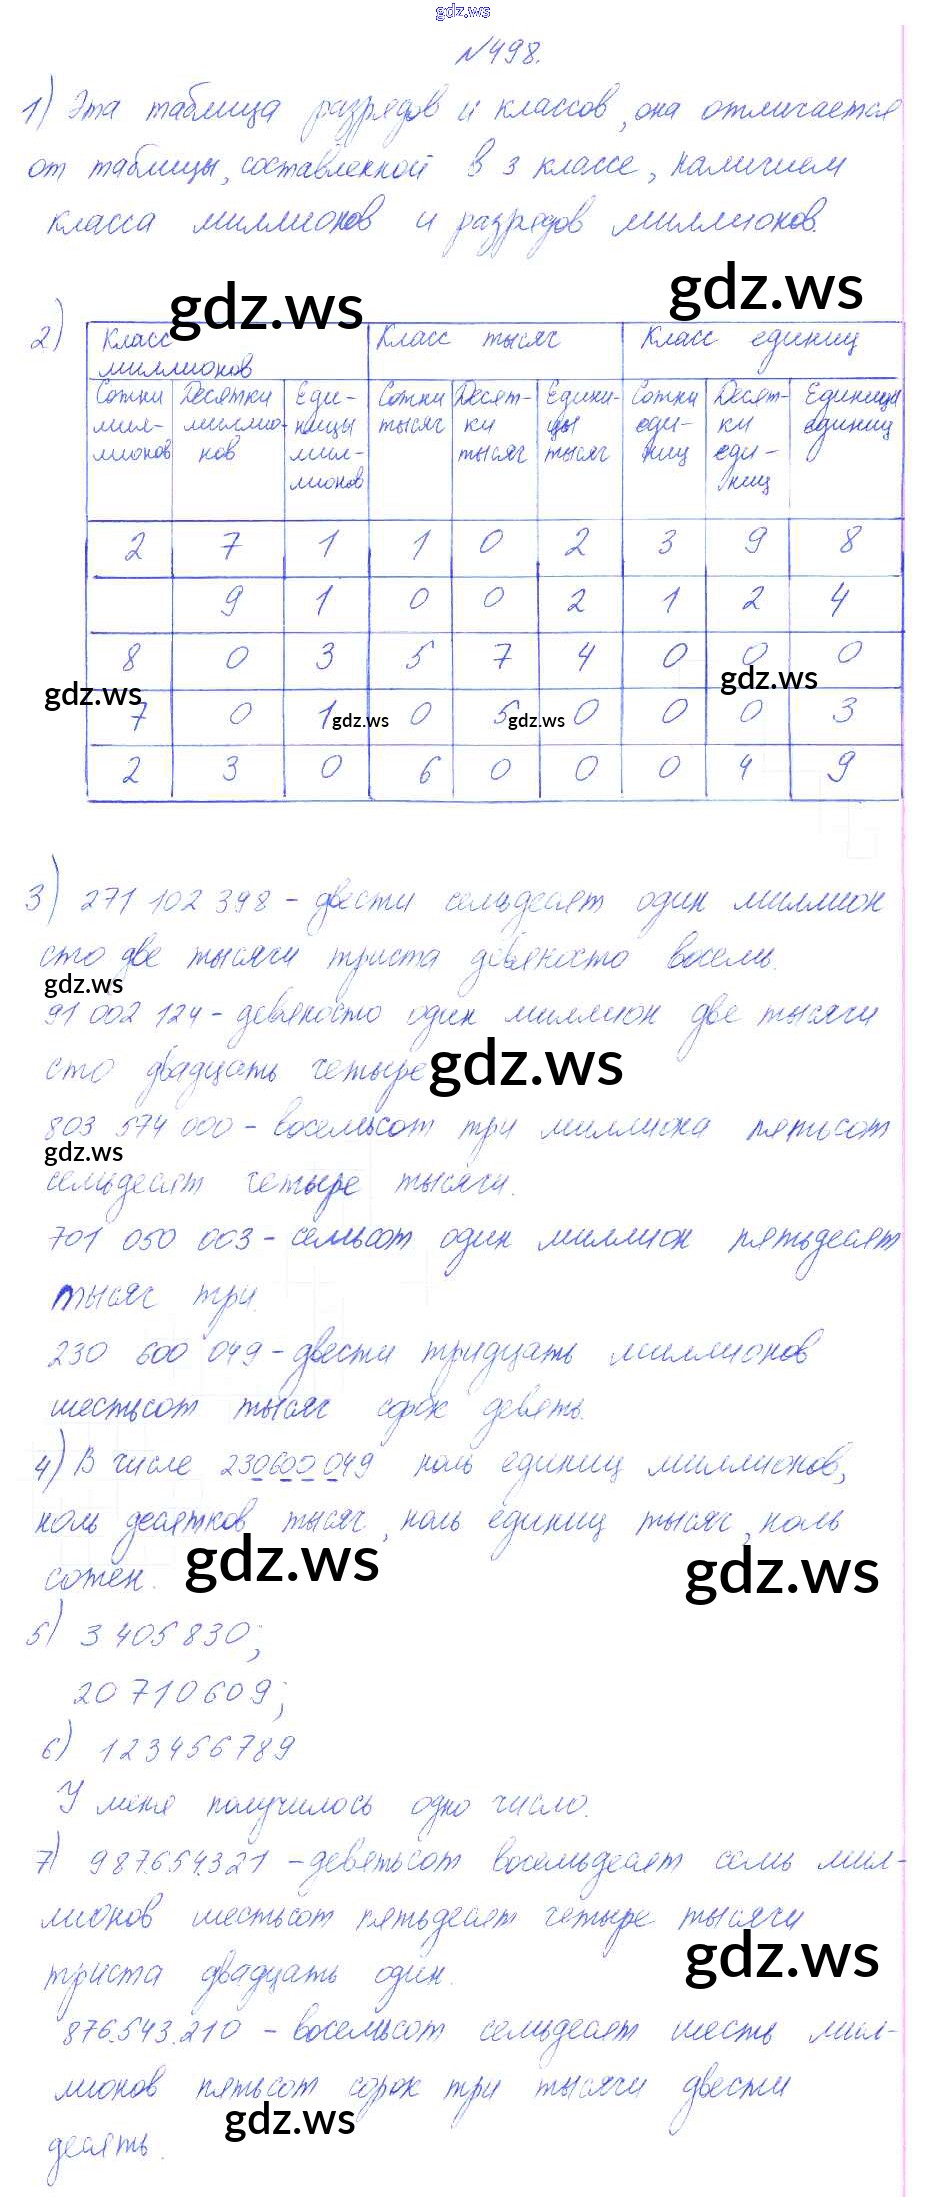 gdz.ws
№498.
1) Эта таблица разрядов и классов, она отличается
от таблицы, составленной в 3 классе, наличием
класса миллионов и разрядов миллионов.
gdz.ws
gdz.ws
2) Класс миллионов Класс тысяч Класс единиц
Сотни миллионов Десятки миллионов Единицы миллионов Сотни тысяч Десятки тысяч Единицы тысяч Сотни единиц Десятки единиц Единицы единиц
2 7 1 1 0 2 3 9 8
9 1 0 0 2 1 2 4
8 0 3 5 7 4 0 0 0
gdz.ws gdz.ws
7 0 1 0 5 0 0 0 3
gdz.ws gdz.ws
2 3 0 6 0 0 0 4 9
3) 271 102 398 - двести семьдесят один миллион
сто две тысячи триста девяносто восемь.
gdz.ws
91 002 124 - девяносто один миллион две тысячи
сто двадцать четыре
gdz.ws
803 574 000 - восемьсот три миллиона пятьсот
gdz.ws
семьдесят четыре тысячи.
701 050 003 - семьсот один миллион пятьдесят
тысяч три.
230 600 049 - двести тридцать миллионов
шестьсот тысяч сорок девять.
4) В числе 230600049 ноль единиц миллионов,
ноль десятков тысяч, ноль единиц тысяч, ноль
сотен.
gdz.ws gdz.ws
5) 3 405 830;
20 710 609;
6) 123456789
У меня получилось одно число.
7) 987.654.321 - девятьсот восемьдесят семь мил-
лионов шестьсот пятьдесят четыре тысячи
триста двадцать один.
gdz.ws
876.543.210 - восемьсот семьдесят шесть мил-
лионов пятьсот сорок три тысячи двести
gdz.ws
десять.